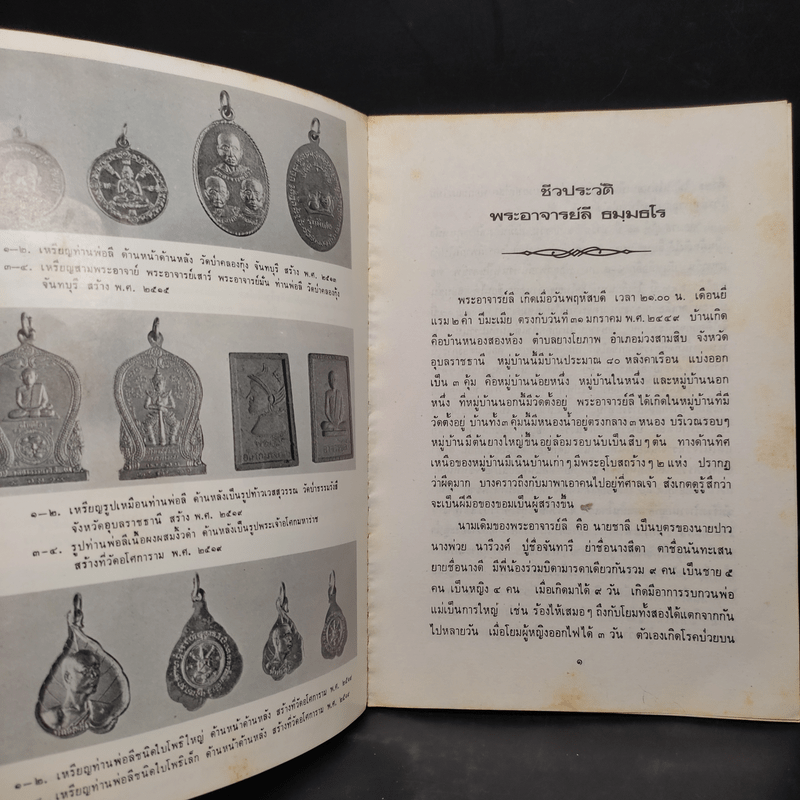 ๑–๒. เหรียญท่านพ่อลี ด้านหน้าด้านหลัง วัดป่าคลองกุ้ง จันทบุรี สร้าง พ.ศ. ๒๕๑๒
๓–๔. เหรียญสามพระอาจารย์ พระอาจารย์เสาร์ พระอาจารย์มั่น ท่านพ่อลี วัดป่าคลองกุ้ง
จันทบุรี สร้าง พ.ศ. ๒๕๑๕
๑–๒. เหรียญรูปเหมือนท่านพ่อลี ด้านหลังเป็นรูปท้าวเวสสุวรรณ วัดป่าธรรมรังสี
จังหวัดอุบลราชธานี สร้าง พ.ศ. ๒๕๑๙
๓–๔. รูปท่านพ่อลีเนื้อผงผสมงั้วดำ ด้านหลังเป็นรูปพระเจ้าอโศกมหาราช
สร้างที่วัดอโศการาม พ.ศ. ๒๕๑๙
๑–๒. เหรียญท่านพ่อลีชนิดใบโพธิ์ใหญ่ ด้านหน้าด้านหลัง สร้างที่วัดอโศการาม พ.ศ.
เหรียญท่านพ่อลีชนิดใบโพธิ์เล็ก ด้านหน้าด้านหลัง สร้างที่วัดอโศการาม พ.ศ.
ชีวประวัติ
พระอาจารย์ลี ธมฺมธโร
พระอาจารย์ลี เกิดเมื่อวันพฤหัสบดี เวลา ๒๑.๐๐ น. เดือนยี่
แรม ๒ ค่ำ ปีมะเมีย ตรงกับวันที่ ๓๑ มกราคม พ.ศ. ๒๔๔๙ บ้านเกิด
คือบ้านหนองสองห้อง ตำบลยางโยภาพ อำเภอม่วงสามสิบ จังหวัด
อุบลราชธานี หมู่บ้านนี้มีบ้านประมาณ ๘๐ หลังคาเรือน แบ่งออก
เป็น ๓ คุ้ม คือหมู่บ้านน้อยหนึ่ง หมู่บ้านในหนึ่ง และหมู่บ้านนอก
หนึ่ง ที่หมู่บ้านนอกนี้มีวัดตั้งอยู่ พระอาจารย์ลีได้เกิดในหมู่บ้านที่มี
วัดตั้งอยู่ บ้านทั้ง ๓ คุ้มนี้มีหนองน้ำอยู่ตรงกลาง ๓ หนอง บริเวณรอบๆ
หมู่บ้านมีต้นยางใหญ่ขึ้นอยู่ล้อมรอบนับเป็นสิบๆ ต้น ทางด้านทิศ
เหนือของหมู่บ้านมีเนินบ้านเก่าๆ มีพระอุโบสถร้างๆ ๒ แห่ง ปรากฏ
ว่าผีดุมาก บางคราวถึงกับมาพาเอาคนไปอยู่ที่ศาลเจ้า สังเกตดูรู้สึกว่า
จะเป็นฝีมือของขอมเป็นผู้สร้างขึ้น
นามเดิมของพระอาจารย์ลี คือ นายชาลี เป็นบุตรของนายปาว
นางพ่วย นารีวงศ์ ปู่ชื่อจันทารี ย่าชื่อนางสีดา ตาชื่อนันทะเสน
ยายชื่อนางดี มีพี่น้องร่วมบิดามารดาเดียวกันรวม ๙ คน เป็นชาย ๕
คน เป็นหญิง ๔ คน เมื่อเกิดมาได้ ๙ วัน เกิดมีอาการรบกวนพ่อ
แม่เป็นการใหญ่ เช่น ร้องไห้เสมอๆ ถึงกับโยมทั้งสองได้แตกจากกัน
ไปหลายวัน เมื่อโยมผู้หญิงออกไฟได้ ๓ วัน ตัวเองเกิดโรคป่วยบน
๑